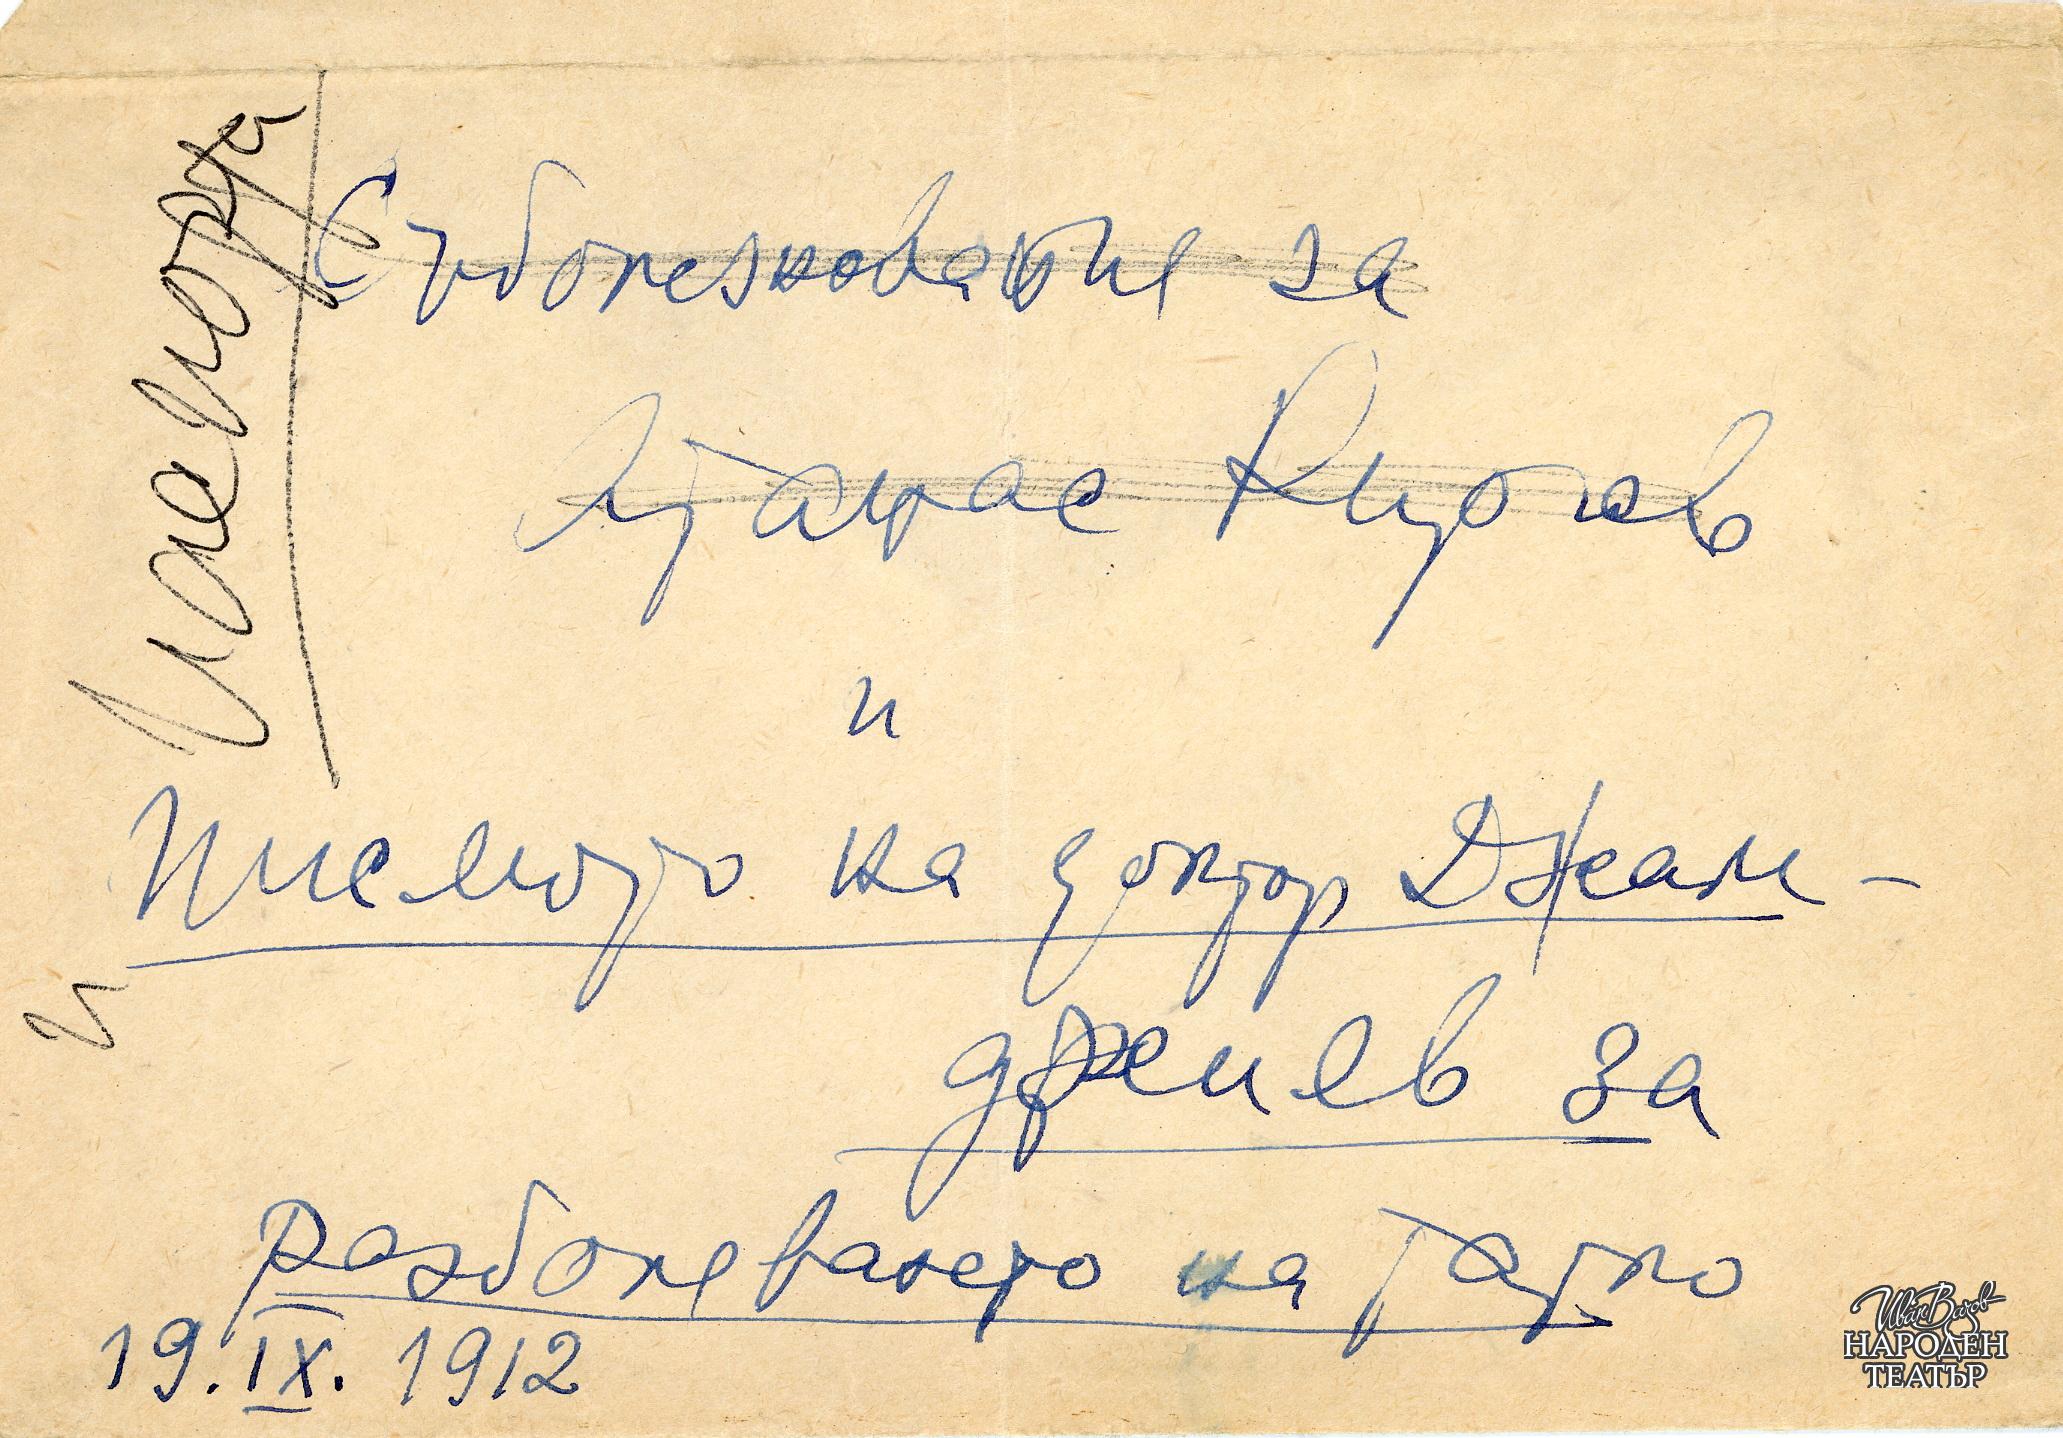 Съболезнования за
Атанас Кирчев
и
писмото на доктор Джам-
джиев за
разболяването на татко
19.IX.1912
и
Иван Вазов
НАРОДЕН
ТЕАТЪР